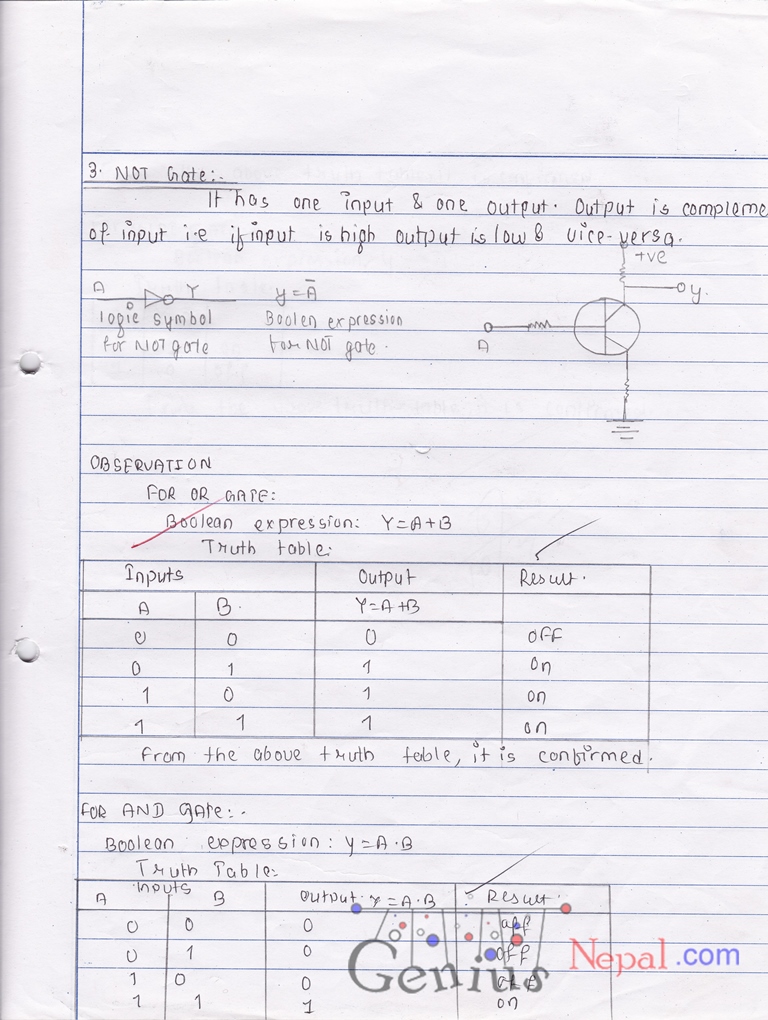 3. NOT Gate:-
It has one input & one output. Output is compleme
of input i.e if input is high output is low & vice-versa.
+ve
A Y y = Ā
y.
logic symbol Boolen expression
for NOT gate for NOT gate.
A
OBSERVATION
FOR OR GATE:
Boolean expression: Y=A+B
Truth table:
Inputs Output Result.
A B. Y=A+B
0 0 0 off
0 1 1 on
1 0 1 on
1 1 1 on
from the above truth table, it is confirmed.
FOR AND Gate:-
Boolean expression: y=A·B
Truth Table:
Inputs
A B Output. Y=A·B Result.
0 0 0 off
0 1 0 off
1 0 0 off
1 1 1 on
Genius Nepal.com